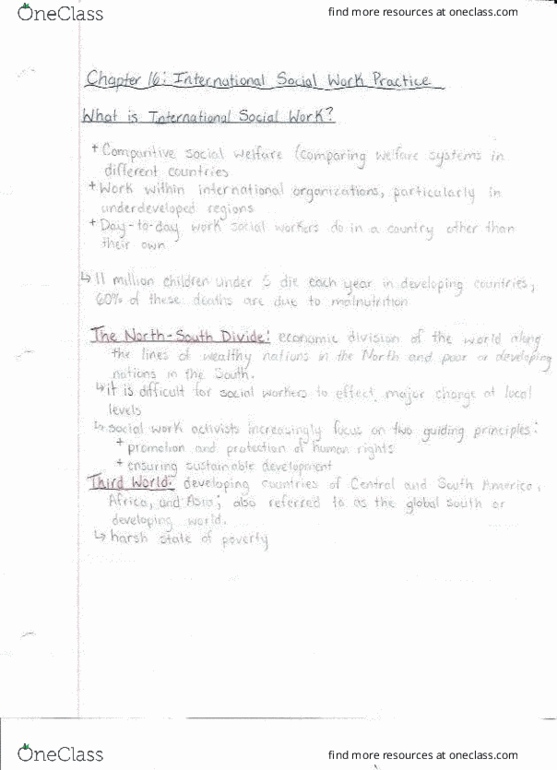 OneClass
find more resources at oneclass.com
Chapter 16: International Social Work Practice
What is International Social Work?
+ Comparitive social welfare (comparing welfare systems in
different countries
+ Work within international organizations, particularly in
underdeveloped regions
+ Day-to-day work social workers do in a country other than
their own
↳ 11 million children under 5 die each year in developing countries,
60% of these deaths are due to malnutrition
The North-South Divide: economic division of the world along
the lines of wealthy nations in the North and poor or developing
nations in the South.
↳ it is difficult for social workers to effect major change at local
levels
↳ social work activists increasingly focus on two guiding principles:
+ promotion and protection of human rights
+ ensuring sustainable development
Third World: developing countries of Central and South America,
Africa, and Asia; also referred to as the global south or
developing world.
↳ harsh state of poverty
OneClass
find more resources at oneclass.com